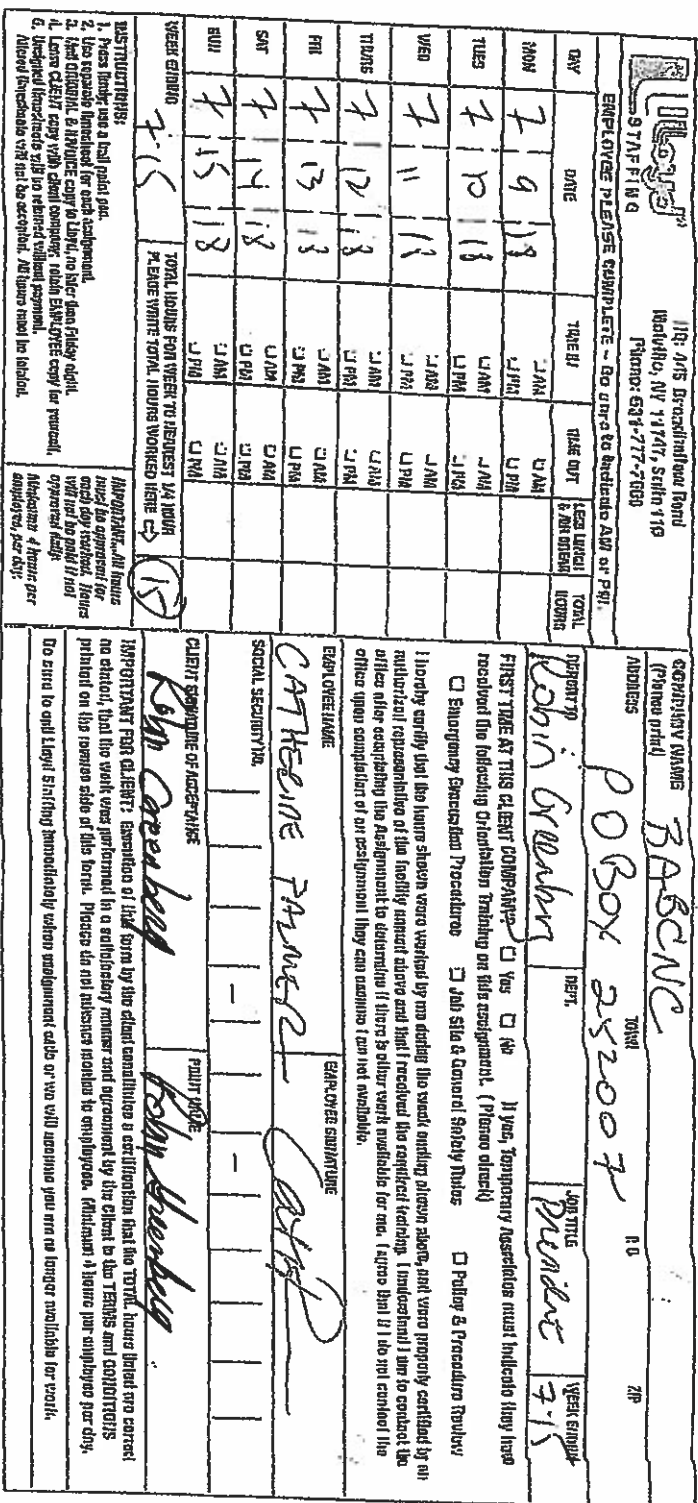 Lloyd
STAFFING
HQ: 445 Broadhollow Road
Melville, NY 11747, Suite 119
Phone: 631-777-7600
EMPLOYEE PLEASE COMPLETE – Be sure to indicate AM or PM.
DAY DATE TIME IN TIME OUT LESS LUNCH TOTAL HOURS
MON 7 9 18 AM PM AM PM
TUES 7 10 18 AM PM AM PM
WED 7 11 18 AM PM AM PM
THURS 7 12 18 AM PM AM PM
FRI 7 13 18 AM PM AM PM
SAT 7 14 18 AM PM AM PM
SUN 7 15 18 AM PM AM PM
WEEK ENDING 7-15
TOTAL HOURS FOR WEEK TO NEAREST 1/4 HOUR
PLEASE WRITE TOTAL HOURS WORKED HERE 15
INSTRUCTIONS:
1. Press firmly, use a ball point pen.
2. Use separate timesheet for each assignment.
3. Mail ORIGINAL & INVOICE copy to Lloyd, no later than Friday night.
4. Leave CLIENT copy with client company, retain EMPLOYEE copy for yourself.
5. Unsigned timesheets will be returned without payment.
Altered timesheets will not be accepted. All hours must be totaled.
IMPORTANT: All hours
must be approved for
each day worked. Hours
will not be paid if not
approved daily.
Minimum 4 hours per
employee, per day.
COMPANY NAME BABCNC
(Please print)
ADDRESS PO BOX 252007 TOWN ZIP
REPORT TO Robin Greenbrg DEPT. JOB TITLE President WEEK ENDING 7-15
FIRST TIME AT THIS CLIENT COMPANY? Yes No If yes, Temporary Associates must indicate they have
received the following Orientation Training on this assignment. (Please check)
Emergency Evacuation Procedures Job Site & General Safety Rules Policy & Procedure Review
I hereby certify that the hours shown were worked by me during the week ending shown above, and were properly certified by an
authorized representative of the facility named above and that I received the required training. I understand I am to contact the
office after completing the Assignment to determine if there is other work available for me. I agree that if I do not contact the
office upon completion of an assignment they can assume I am not available.
EMPLOYEE NAME EMPLOYEE SIGNATURE
CATHERINE PALMER
SOCIAL SECURITY NO. – –
CLIENT SIGNATURE OF ACCEPTANCE PRINT NAME
Robin Greenberg Robin Greenberg
IMPORTANT FOR CLIENT: Execution of this form by the client constitutes a certification that the TOTAL hours listed are correct
as stated, that the work was performed in a satisfactory manner and agreement by the Client to the TERMS and CONDITIONS
printed on the reverse side of this form. Please do not advance monies to employees. (Minimum 4 hours per employee per day.
Be sure to call Lloyd Staffing immediately when assignment ends or we will assume you are no longer available for work.